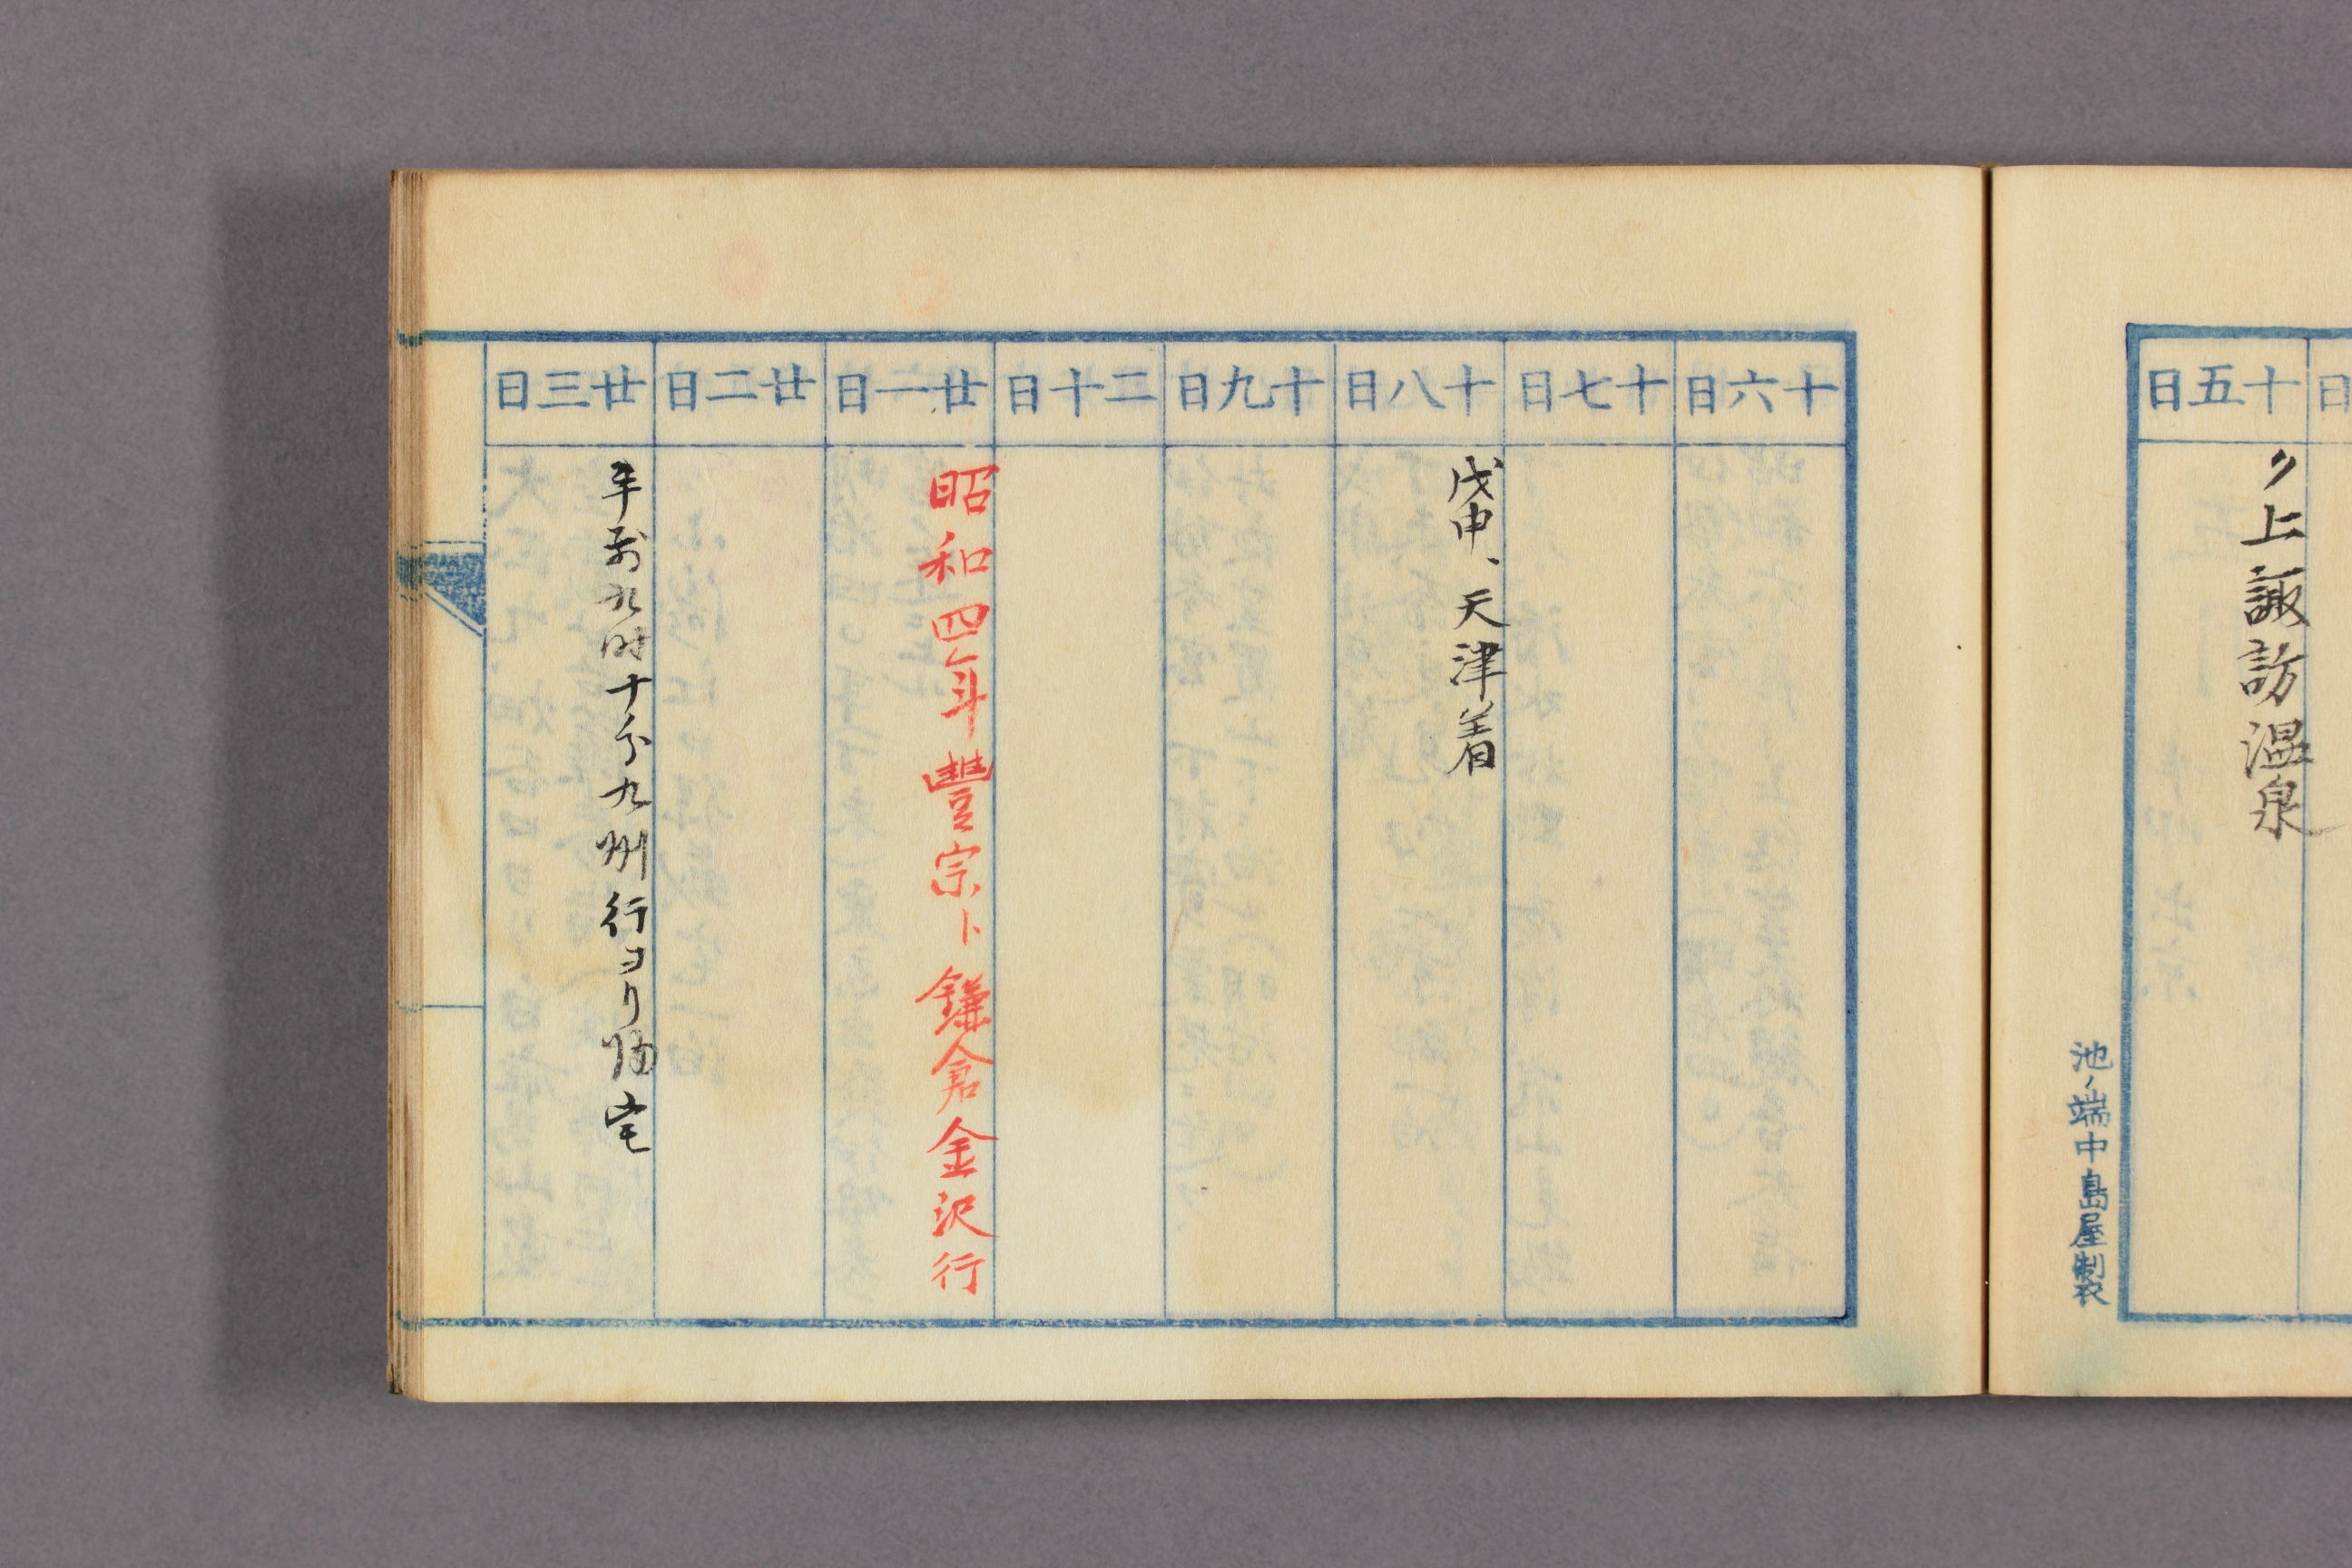 十五日
〃上諏訪温泉
池ノ端中島屋製
十六日
十七日
十八日
戊申、天津着
十九日
二十日
廿一日
昭和四年豐宗ト鎌倉金沢行
廿二日
廿三日
午前九時十分九州行ヨリ帰宅